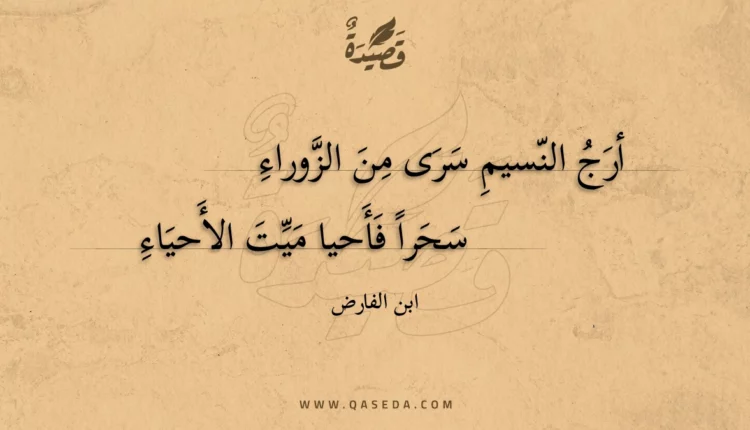 قَصِيدَةٌ
أرَجُ النّسيمِ سَرَى مِنَ الزَّوراءِ
سَحَراً فَأَحيا مَيِّتَ الأَحيَاءِ
ابن الفارض
WWW.QASEDA.COM